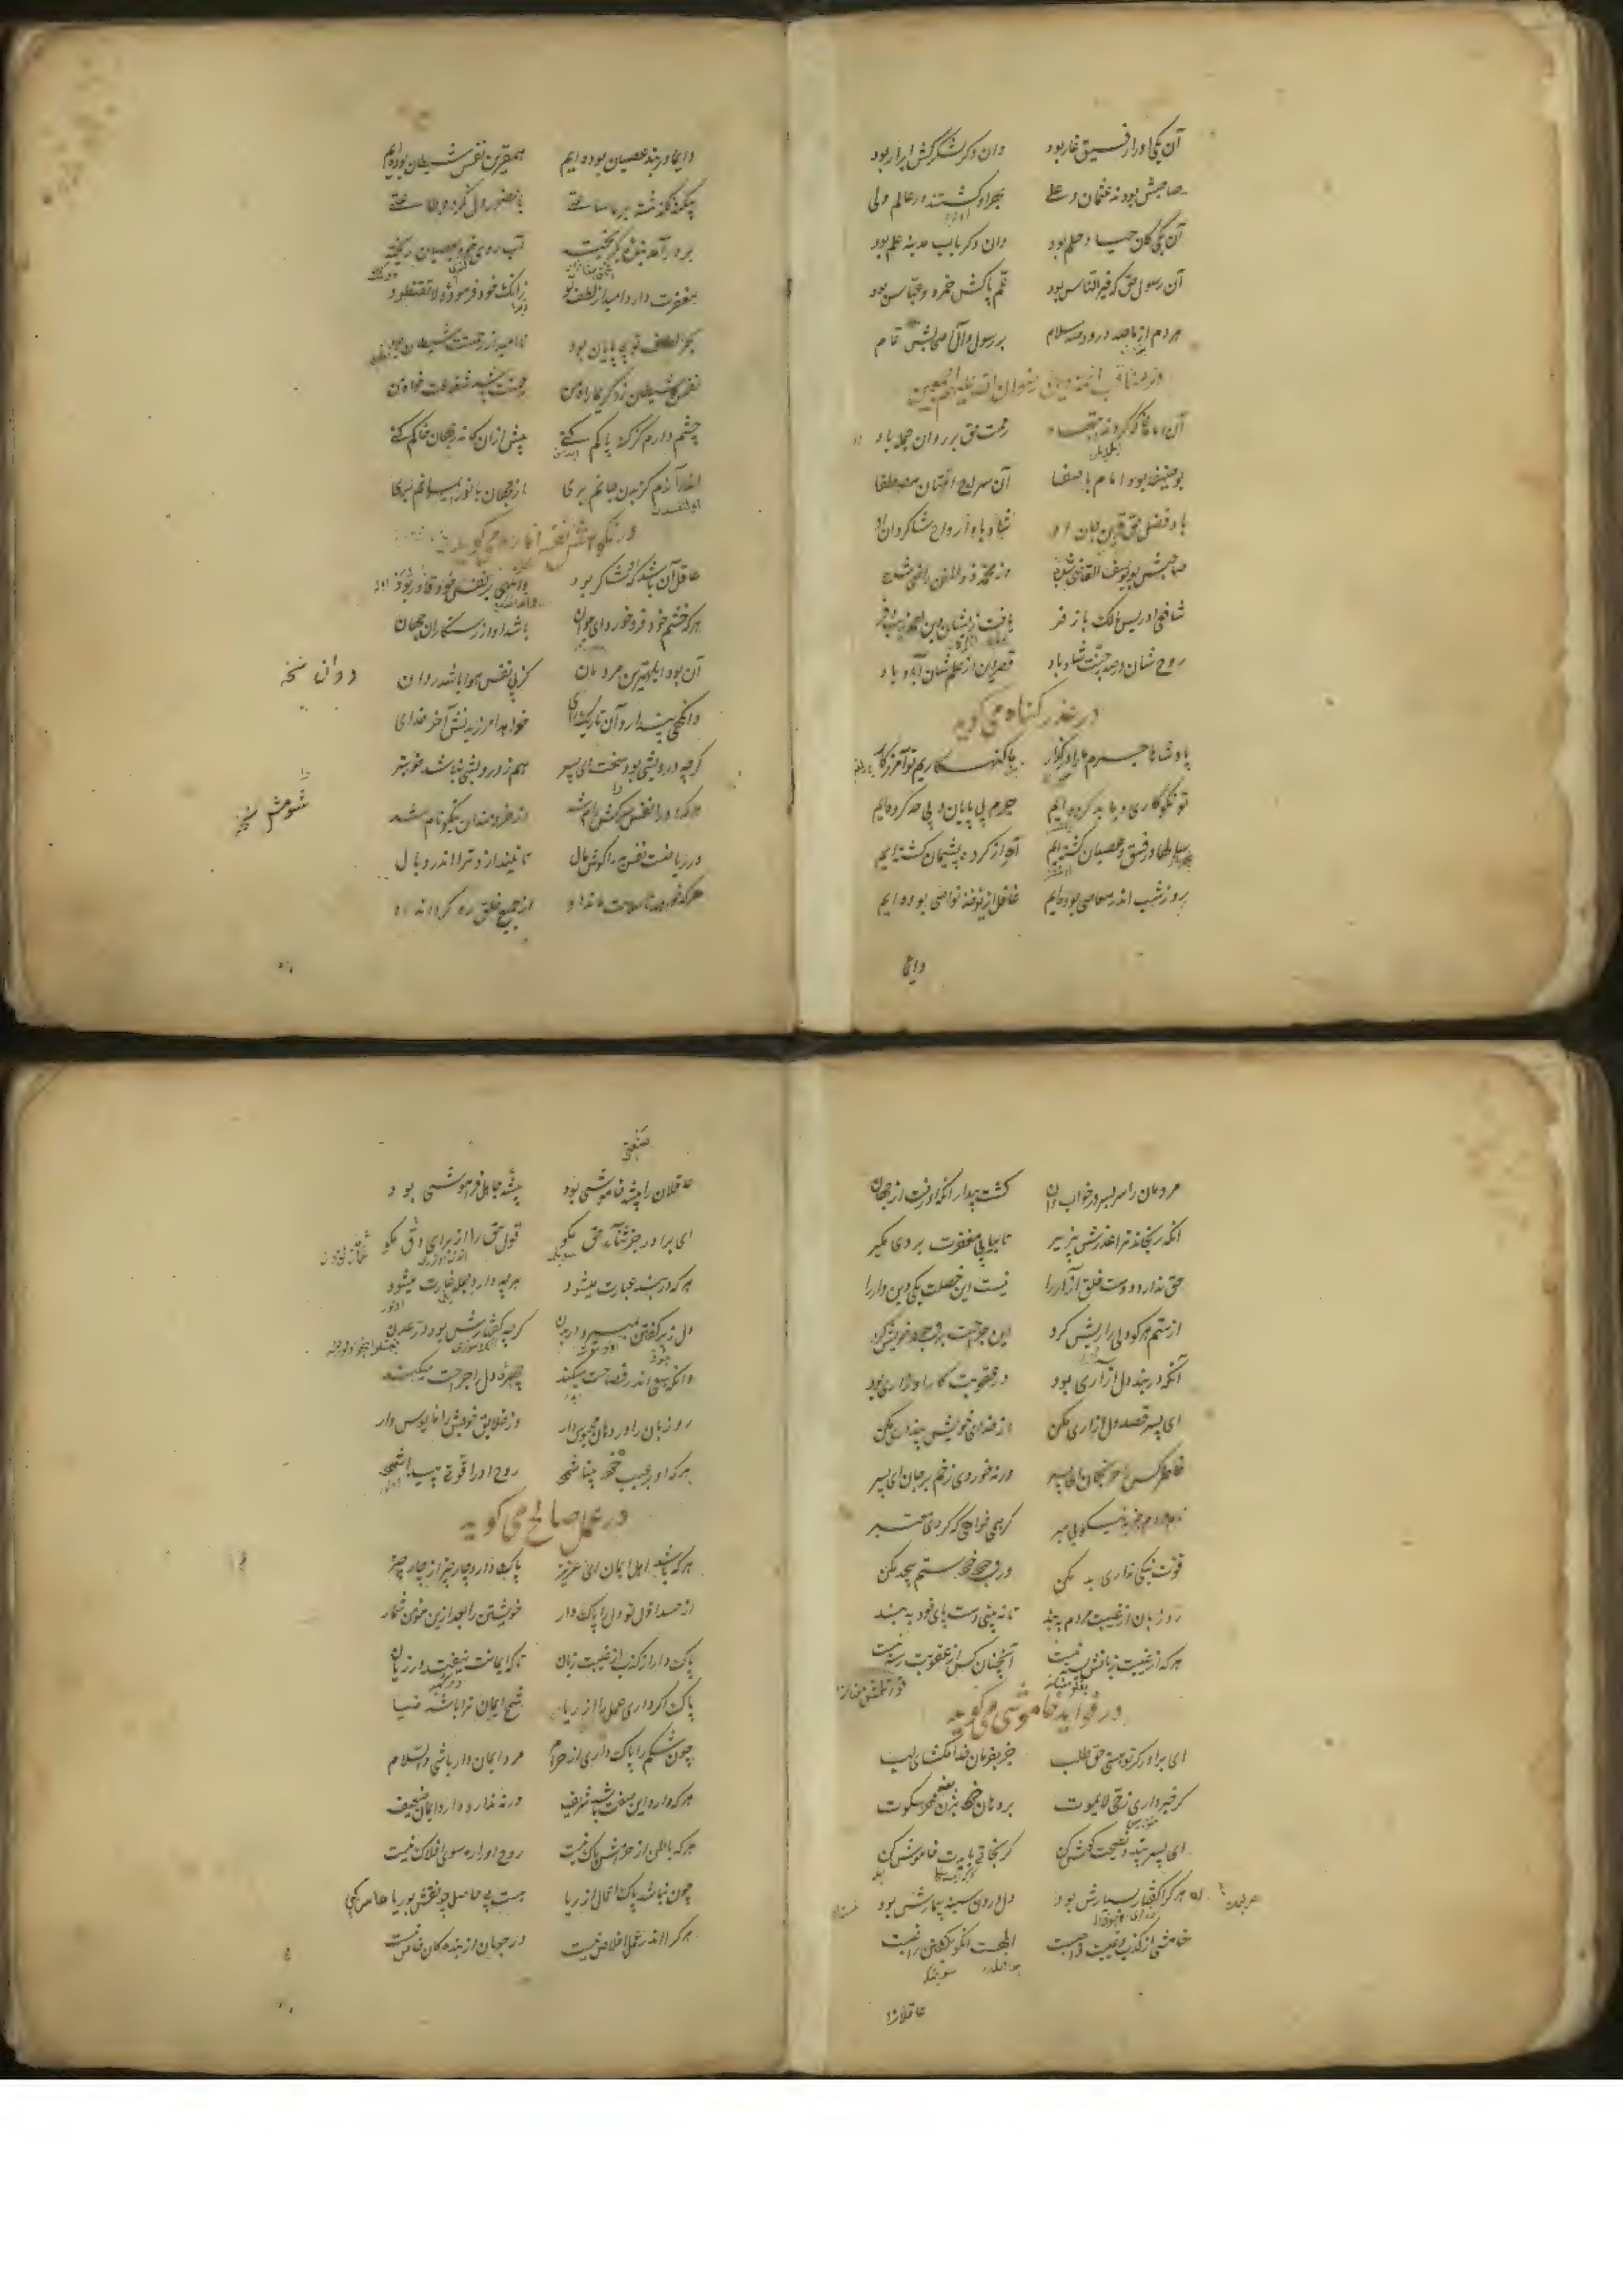 آن یکی اورا رفیق غار بود وان دکر لشکرکش ابرار بود
صاحبش بودند عثمان و علی بهر او کشتند در عالم ولی
آن یکی کان حیا و حلم بود وان دکر باب مدینه علم بود
آن رسول حق که خیر الناس بود عم پاکش حمزه و عباس بود
هر دم از ما صد درود و صد سلام بر رسول و آل و اصحابش تمام
آن امامانی که کردند اجتهاد رحمت حق بر روان جمله باد
بو حنیفه بود امام با صفا آن سراج امتان مصطفا
باد فضل حق قرین جان او شاد باد ارواح شاکردان او
صاحبش بو یوسف القاضی شده وز محمد ذو المنن راضی شده
شافعی ادریس مالک با زفر
روح شان در صدر جنت شاد باد قصر دین از علم شان آباد باد
در عذر کناه می کوید
پادشاها جرم مارا در کذار ما کنه کاریم تو آمرزکار
تو نکو کاری و ما بد کرده ایم جرم بی پایان و بی حد کرده ایم
سالها در فسق و عصیان کشته ایم آخر از کرده پشیمان کشته ایم
روز شب اندر معاصی بوده ایم غافل از نواهی بوده ایم
دایما
دایما در بند عصیان بوده ایم همقرین نفس شیطان بوده ایم
بی کنه نکذشته بر ما ساعتی با حضور دل نکرده طاعتی
بر در آمد بنده بکریخته آب روی خود بعصیان ریخته
مغفرت دارد امید از لطف تو زانک خود فرموده لا تقنطوا
بحر الطاف تو بی پایان بود نا امید از رحمتت شیطان بود
نفس و شیطان زد کریما راه من رحمتت باشد شفاعت خواه من
چشم دارم کز کنه پاکم کنی پیش ازان کاندر جهان خاکم کنی
اندر آن دم کز بدن جانم بری از جهان با نور ایمانم بری
عاقل آن باشد که او شاکر بود وانکهی بر نفس خود قادر بود
هر که خشم خود فرو خورد ای جوان باشد او از رستکاران جهان
آن بود ابلهترین مردمان کز پی نفس هوا باشد روان
دوان نسخه
وانکهی پندارد آن تاریک رای خواهد آمرزیدنش آخر خدای
کر چه درویشی بود سخت ای پسر هم ز درویشی نباشد خوبتر
هر که او را نفس سرکش رام شد از خردمندان نیکو نام شد
شومش نسخه
در ریاضت نفس بد را کوش مال تا نیندازد ترا اندر وبال
هر که خواهد تا سلامت ماند او از جمیع خلق رو کرداند او
مردمان را سر بسر در خواب دان کشت بیدار آنکه او رفت از جهان
آنکه رنجاند ترا عذرش پذیر تا بیابی مغفرت بر وی مکیر
حق ندارد دوست خلق آزار را نیست این خصلت یکی دین دار را
از ستم هر کو دلی را ریش کرد این جراحت بر وجود خویش کرد
آنکه در بند دل آزاری بود در عقوبت کار او زاری بود
ای پسر قصد دل آزاری مکن از خدای خویش بیزاری مکن
خاطر کس را مرنجان ای پسر ورنه خوردی زخم بر جان ای پسر
نام مردم جز به نیکویی مبر کر همی خواهی که کردی معتبر
قوت نیکی نداری بد مکن بر وجود خود ستم بیحد مکن
رو زبان از غیبت مردم ببند تا نه بینی دست پای خود به بند
هر که از غیبت زبانش بسته نیست آنچنان کس از عقوبت رسته نیست
در فواید خاموشی می کوید
ای برادر کر تو هستی حق طلب جز بفرمان خدا مکشای لب
کر خبر داری ز حی لایموت بر دهان خود بزن مهر سکوت
ای پسر پند و نصیحت کوش کن کر نجاتی بایدت خاموش کن
هر کرا کفتار بسیارش بود دل درون سینه بیمارش بود
خامشی از کذب و غیبت واجبست ابلهست آنکو بکفتن راغبست
عاقلانرا
عاقلان را پیشه خاموشی بود پیشه جاهل فراموشی بود
ای برادر جز ثنای حق مکو قول حق را از برای دق مکو
هر که در بند عبارت میشود هر چه دارد جمله غارت میشود
دل ز پر کفتن بمیرد در بدن کر چه کفتارش بود در عدن
وانکه سعی اندر فصاحت میکند چهره دل را جراحت میکند
رو زبان را در دهان محبوس دار وز خلایق خویش را مایوس دار
هر که او بر عیب خود بینا شود روح او را قوتی پیدا شود
در عمل صالح می کوید
هر که باشد اهل ایمان ای عزیز پاک دارد چار چیز از چار چیز
از حسد اول تو دل را پاک دار خویشتن را بعد ازین مؤمن شمار
پاک دار از کذب از غیبت زبان تا که ایمانت نیفتد در زیان
پاک کر داری عمل را از ریا شمع ایمان ترا باشد ضیا
چون شکم را پاک داری از حرام مرد ایمان دار باشی والسلام
هر که دارد این صفت باشد شریف ورنه ندارد دارد ایمان ضعیف
هر که باطن از حرامش پاک نیست روح او را ره سوی افلاک نیست
چون نباشد پاک اعمال از ریا هست بی حاصل چو نقش بوریا
هر کرا اندر عمل اخلاص نیست در جهان از بنده کان خاص نیست